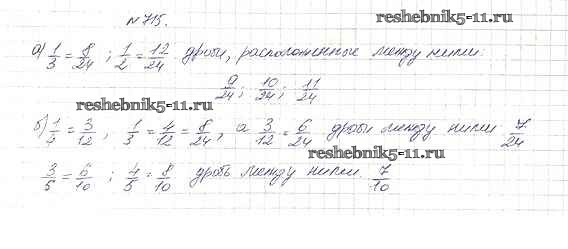 № 715.
reshebnik5-11.ru
а) 1/3 = 8/24 ; 1/2 = 12/24 дроби, расположенные между ними:
9/24 ; 10/24 ; 11/24
reshebnik5-11.ru
б) 1/4 = 3/12 , 1/3 = 4/12 = 8/24 , а 3/12 = 6/24 дробь между ними 7/24
reshebnik5-11.ru
3/5 = 6/10 ; 4/5 = 8/10 дробь между ними. 7/10